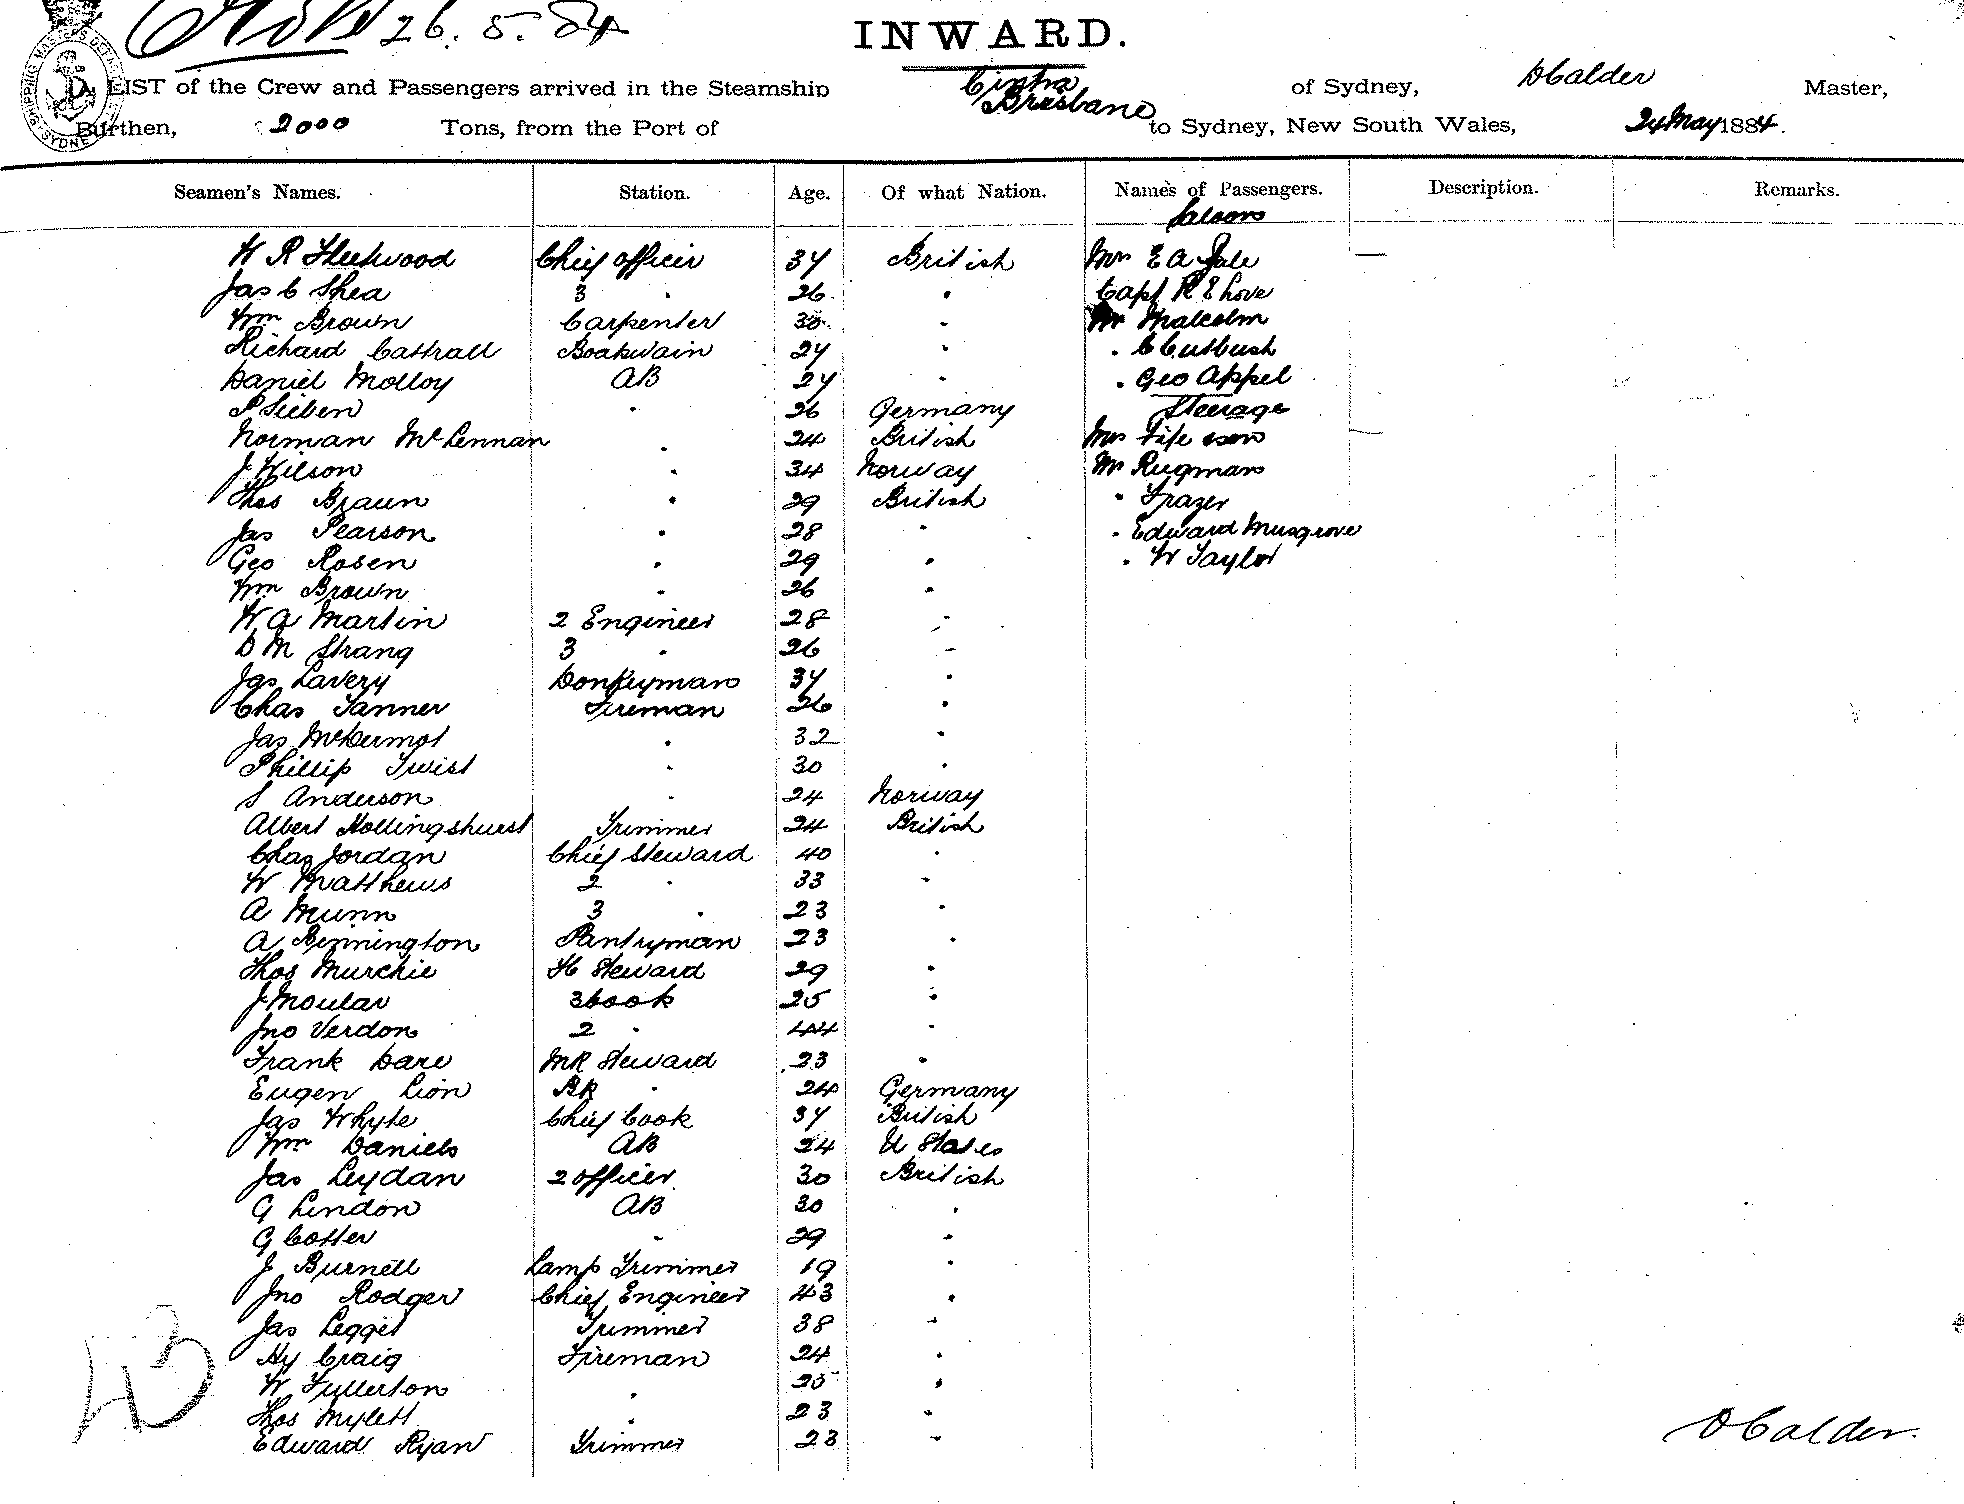 26.5.84
INWARD.
A LIST of the Crew and Passengers arrived in the Steamship Cintra of Sydney, D Calder Master,
Burthen, 2000 Tons, from the Port of Brisbane to Sydney, New South Wales, 24 May 1884.
Seamen's Names. Station. Age. Of what Nation. Names of Passengers. Description. Remarks.
Saloon
W R Fleetwood Chief officer 37 British Mrs E A Gale —
Jas C Shea 3 " 26 " Capt R E Love
Wm Brown Carpenter 30 " Mr Malcolm
Richard Cattrall Boatswain 27 " " C Cutbush
Daniel Molloy AB 27 " " Geo Appel
P Sieben " 26 Germany Steerage
Norman McLennan " 24 British Mrs Fife —
J Wilson " 34 Norway Mr Rugman
Thos Braun " 29 British " Frazer
Jas Pearson " 28 " " Edward Musgrove
Geo Rosen " 29 " " W Taylor
Wm Brown " 26 "
W A Martin 2 Engineer 28 "
D M Strang 3 " 26 "
Jas Lavery Donkeyman 37 "
Chas Tanner Fireman 26 "
Jas McDermot " 32 "
Phillip Twist " 30 "
S Anderson " 24 Norway
Albert Hollingshurst Trimmer 24 British
Chas Jordan Chief Steward 40 "
W Matthews 2 " 33 "
A Munn 3 " 23 "
A Binnington Pantryman 23 "
Thos Murchie Steward 29 "
J Moular 3 Cook 25 "
Jno Verdon 2 " 44 "
Frank Dare MR Steward 23 "
Eugen Lion BR " 24 Germany
Jas Whyte Chief Cook 37 British
Wm Daniels AB 24 U States
Jas Leydan 2 officer 30 British
G Lindon AB 30 "
G Cotter " 29 "
J Burnell Lamp Trimmer 19 "
Jno Rodger Chief Engineer 43 "
Jas Legget Trimmer 38 "
Hy Craig Fireman 24 "
W Fullerton " 25 "
Thos Mylett " 23 "
Edward Ryan Trimmer 23 "
43
D Calder.